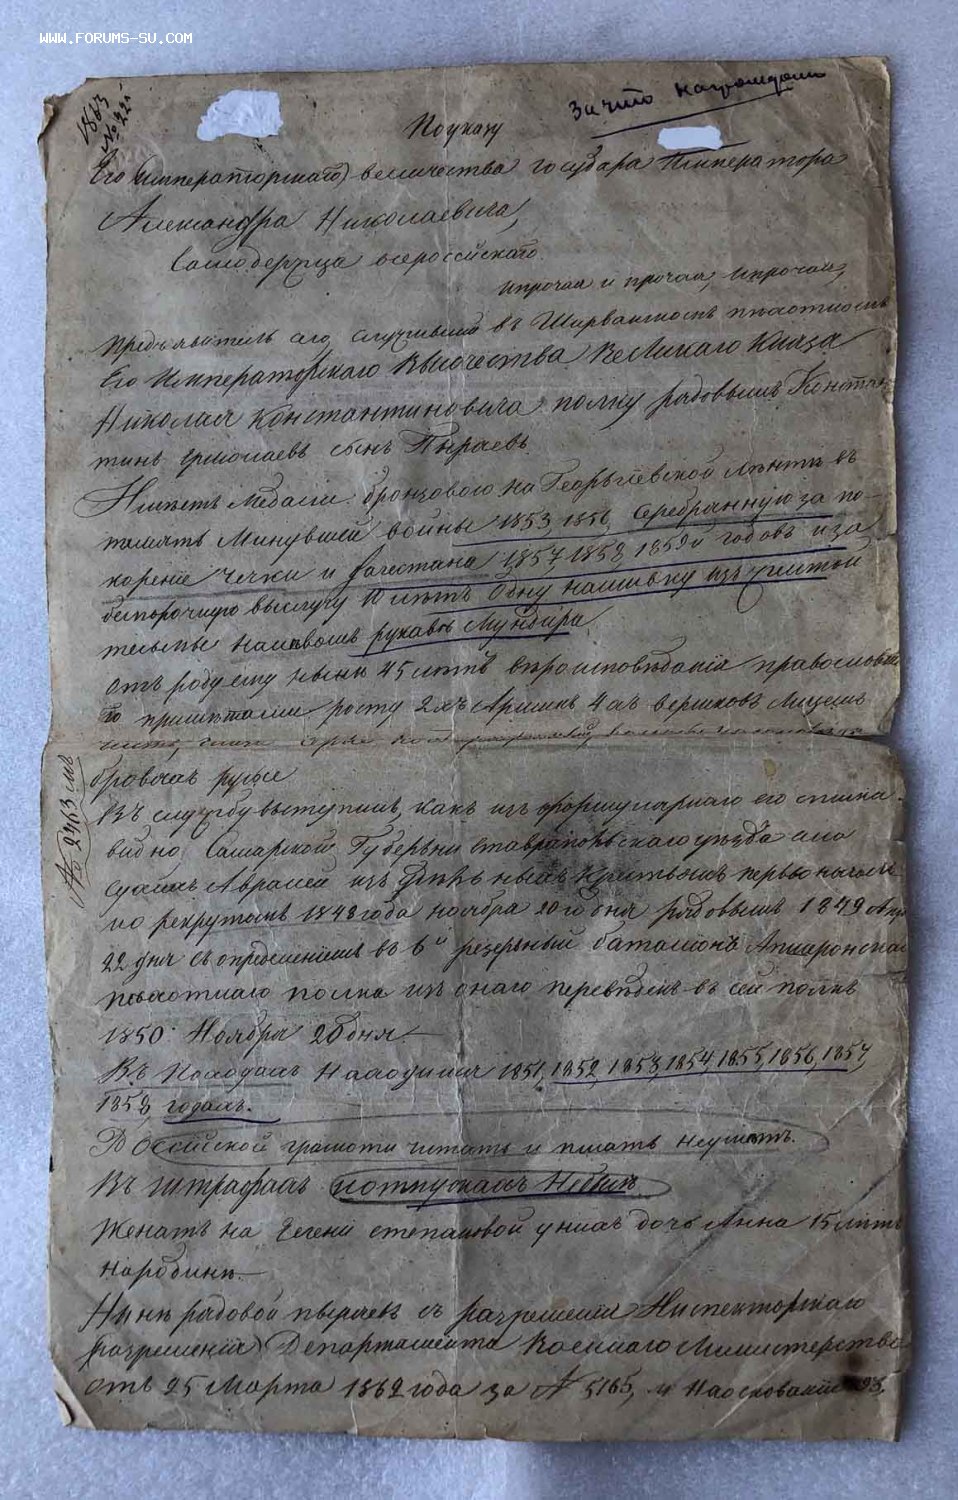 WWW.FORUMS-SU.COM
1863
№ 221
За что награждали
По указу
Его Императорскаго величества государа Императора
Александра Николаевича,
Самодержца всероссійскаго
ипрочая и прочая, ипрочая,
Предъявитель сего, служившій въ Ширванскомъ пехотномъ
Его Императорскаго Высочества Великаго Князя
Николая Константиновича полку рядовымъ Констан
тинъ Ермолаевъ сынъ Пыраевъ
Имѣетъ Медали: бронзовою на Георгіевской лѣнтѣ въ
память Минувшей войны 1853, 1856, серебранную за по-
кореніе Чечни и дагестана 1857, 1858, 1859й годовъ и за
безпорочную выслугу 10 лѣтъ одну нашивку изъ желтой
тесьмы налѣвомъ рукавѣ Мундира
Отъ роду ему нынѣ 45 лѣтъ вѣроисповѣданія православна
го примѣтами росту 2хъ Аршинъ 4 хъ вершковъ Лицемъ
бровяхъ русые
№ 2963
Въ службу вступилъ, какъ изъ формулярнаго его списка
видно Самарской Губерніи Ставрапольскаго уезда
изъ удѣльныхъ крестьянъ первоначаль
но рекрутомъ 1848 года ноября 20 го дня рядовымъ 1849
22 дня съ опредѣленіемъ въ 6й резервный баталіонъ Апшеронскаго
пѣхотнаго полка изъ онаго переведенъ въ сей полкъ
1850 Ноября 20 дня.
Въ Походахъ Находился 1851, 1852, 1853, 1854, 1855, 1856, 1857,
1858, годахъ.
Россійской грамоти читать и писать неумѣетъ.
Въ штрафахъ иотпускахъ Небылъ
Женатъ на Евгеніи степановой унихъ дочь Анна 15 лѣтъ
Нынѣ рядовой пыраевъ съ разрешенія Инспекторскаго
(разрешенія) Департамента Военнаго Министерства
отъ 25 Марта 1862 года за № 5165, и Наоснованіи 93,